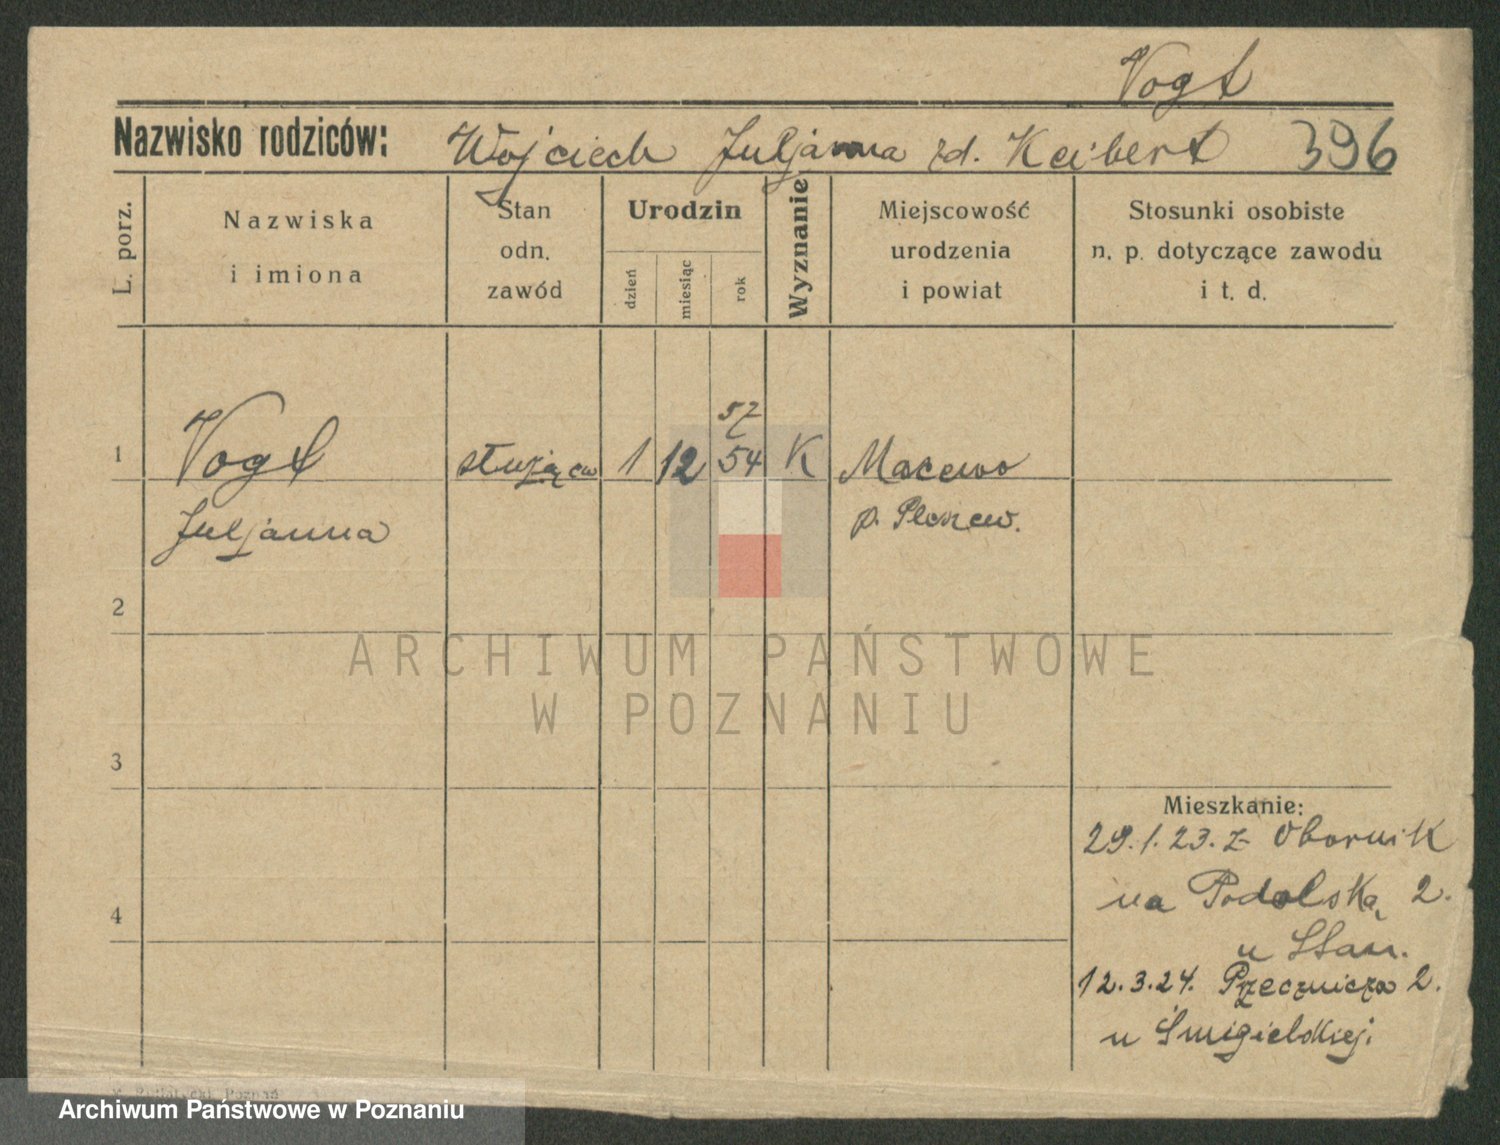 Vogt
Nazwisko rodziców: Wojciech Juljanna zd. Keibert 396
L. porz.
Nazwiska
i imiona
Stan
odn.
zawód
Urodzin
dzień
miesiąc
rok
Wyznanie
Miejscowość
urodzenia
i powiat
Stosunki osobiste
n. p. dotyczące zawodu
i t. d.
57
1 Vogt służąca 1 12 54 K Macewo
Juljanna p. Pleszew.
2
ARCHIWUM PAŃSTWOWE
W POZNANIU
3
Mieszkanie:
29.1.23. z Obornik
na Podolską 2.
4
u Stan.
12.3.24. Przecznicza 2.
u Śmigielskiej.
Poznań
Archiwum Państwowe w Poznaniu